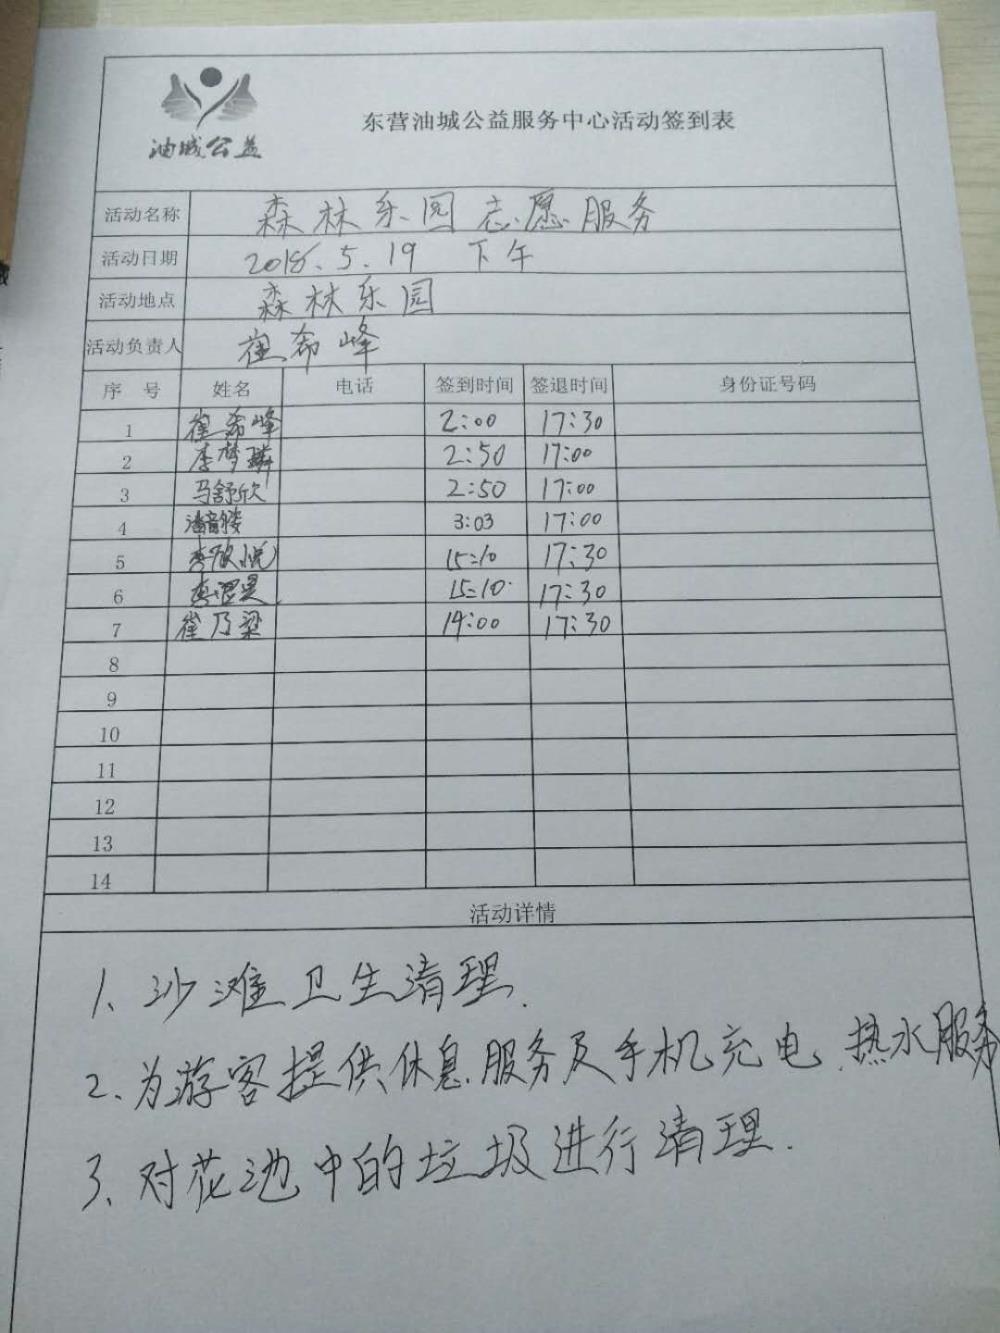 油城公益
东营油城公益服务中心活动签到表
活动名称 森林乐园志愿服务
活动日期 2018.5.19 下午
活动地点 森林乐园
活动负责人 崔希峰
序 号 姓名 电话 签到时间 签退时间 身份证号码
1 崔希峰 2:00 17:30
2 李梦璘 2:50 17:00
3 马舒欣 2:50 17:00
4 3:03 17:00
5 李欣悦 15:10 17:30
6 李 15:10 17:30
7 崔乃梁 14:00 17:30
8
9
10
11
12
13
14
活动详情
1、沙滩卫生清理.
2、为游客提供休息服务及手机充电.热水服务
3、对花池中的垃圾进行清理.